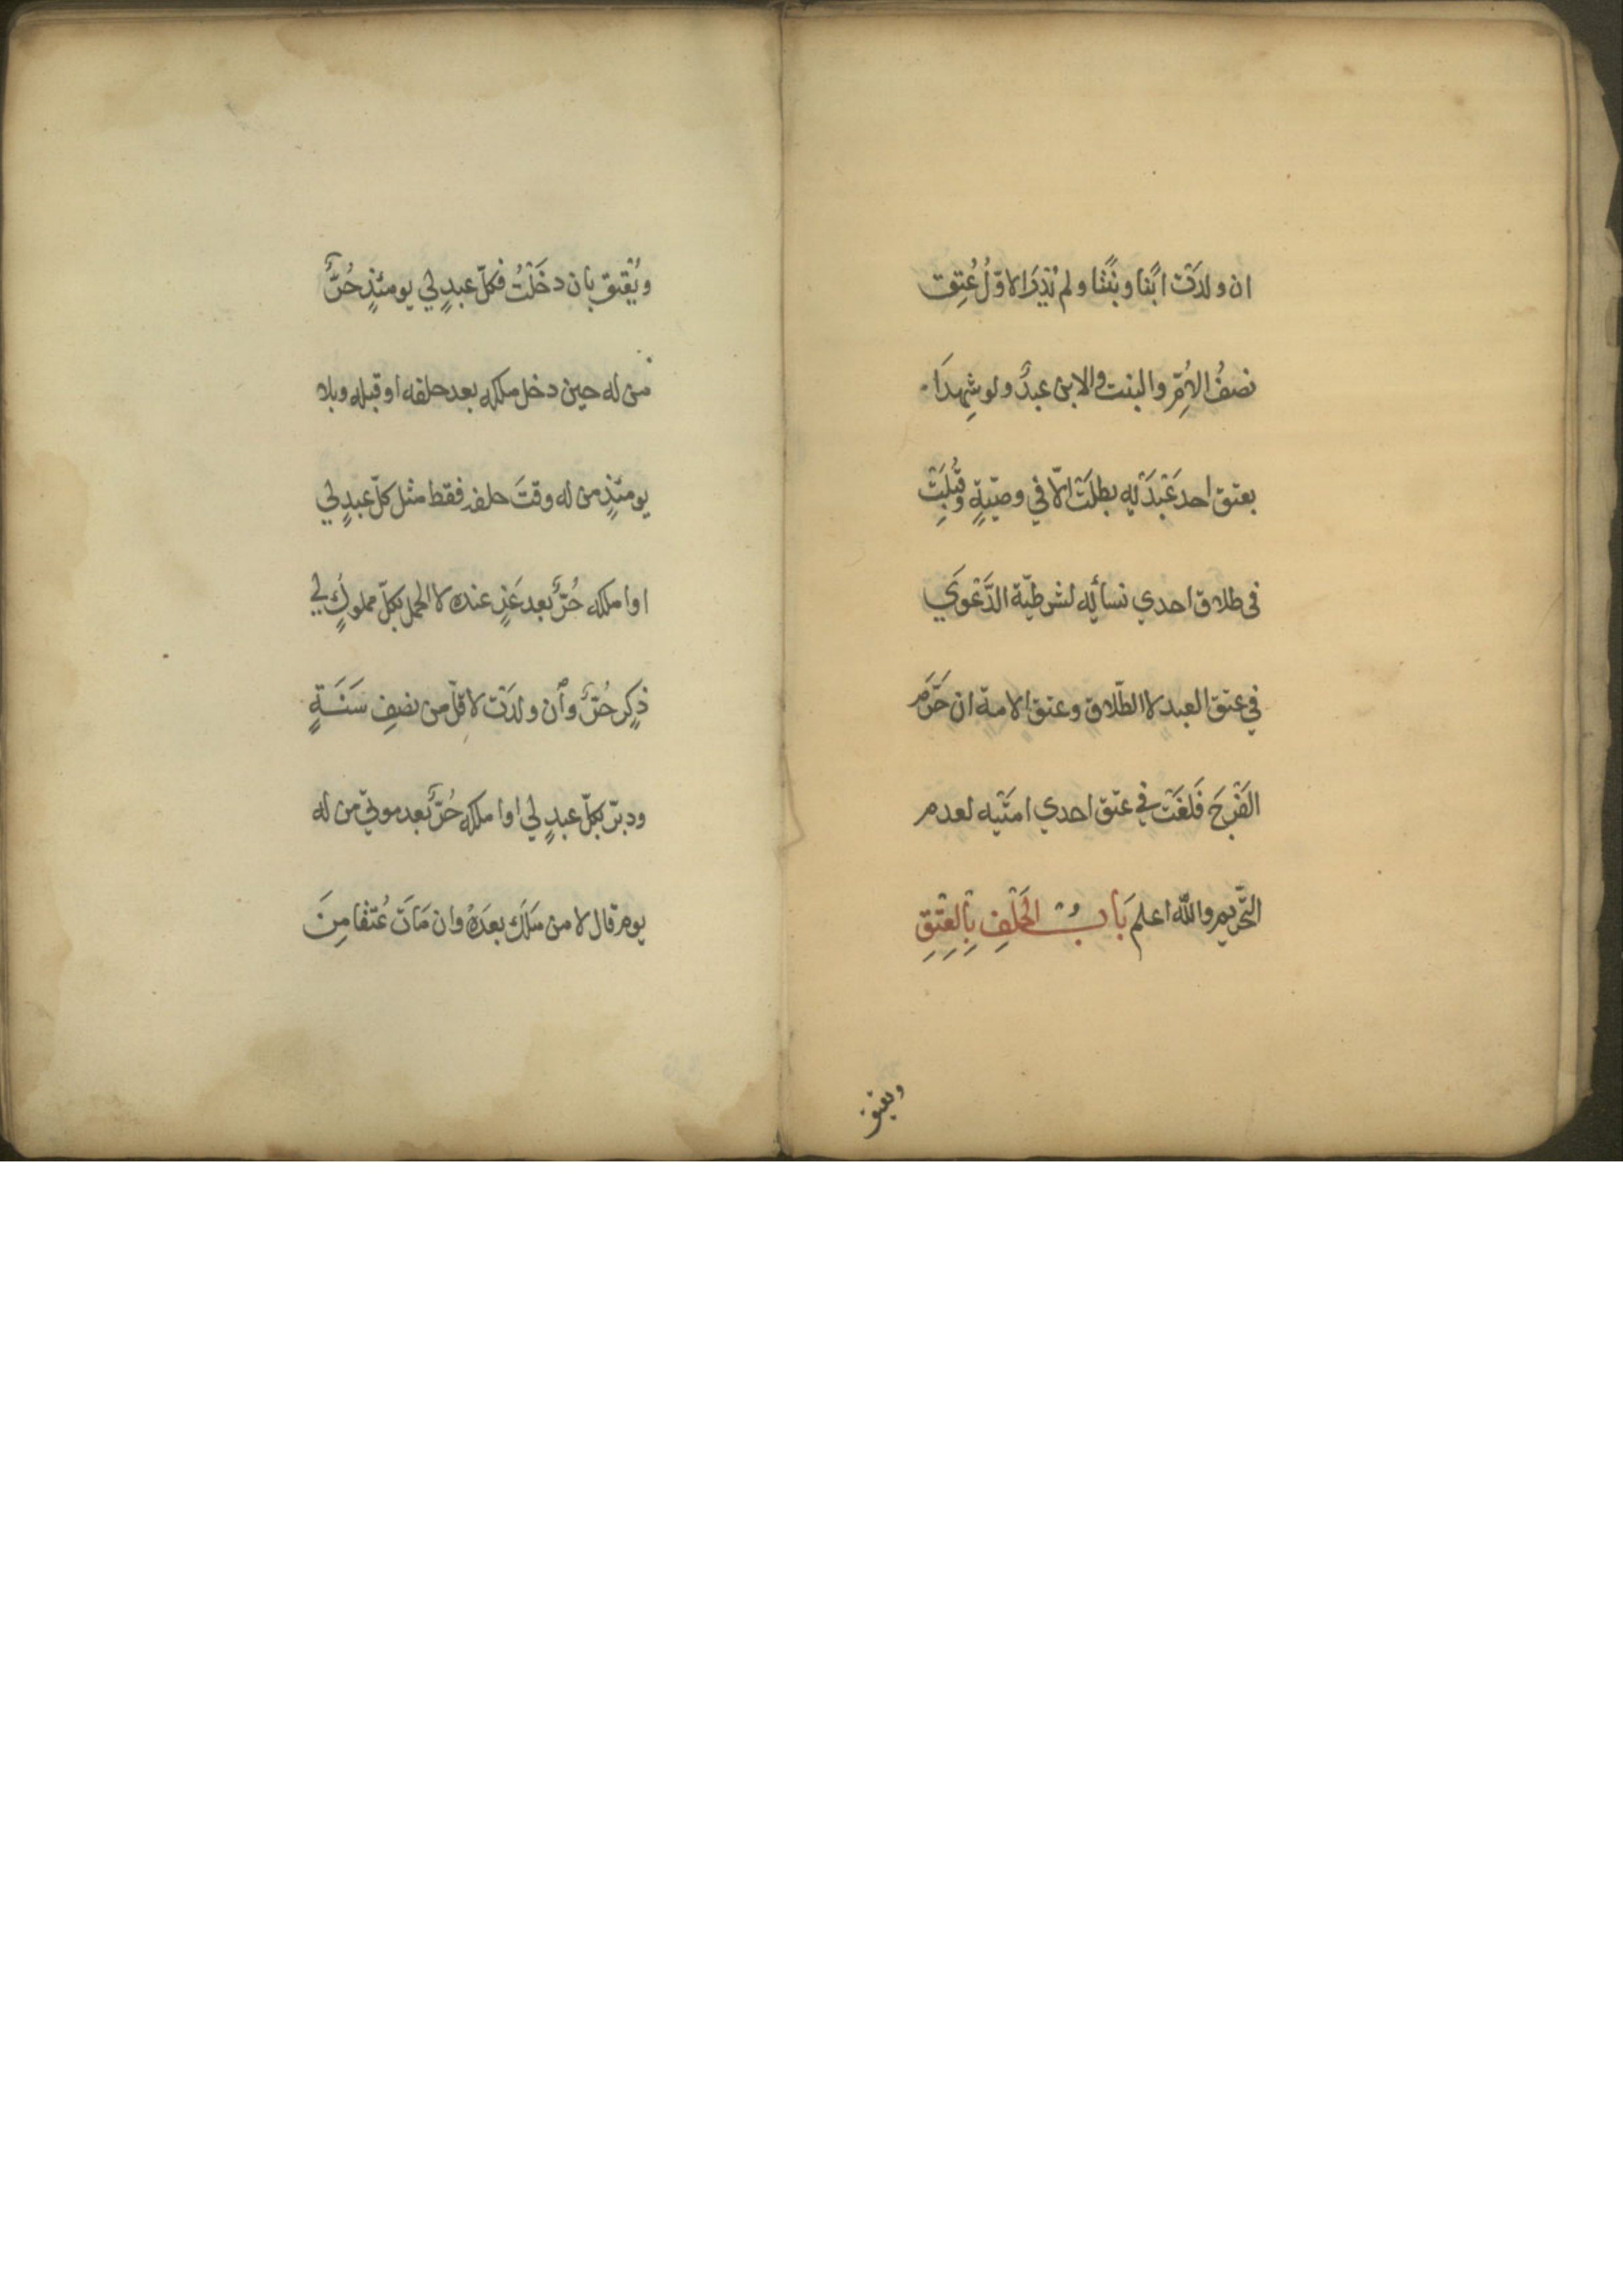 ان ولدَتْ ابنًا وبنتًا ولم يُدْرَ الاوّلُ عُتِق
نصفُ الاُمِّ والبنت والابن عبدٌ ولو شهِدَا
بعتق احد عَبْدَيْه بطلَتْ الّا في وصيّةٍ وقُبِلَتْ
في طلاق احدي نسائه لشرطيّة الدَّعْوَي
في عتق العبد لا الطّلاق وعتق الامة ان حَرَّمَ
الفَرْجَ فَلغَتْ في عتق احدي امَتَيه لعدم
التّحريم والله اعلم بَابُ الحَلْفِ بِالعِتْقِ
ويعتق
ويُعْتِق بان دخَلْتُ فكلّ عبدٍ لي يومئذٍ حُرٌّ
من له حين دخل ملكه بعد حلفه او قبله وبلا
يومئذٍ من له وقتَ حلفه فقط مثل كلّ عبدٍ لي
او املكه حُرٌّ بعد غَدٍ عنده لا الحمل بكلّ مملوكٍ لي
ذكرٍ حُرٌّ وأن ولدَتْ لاقلّ من نصفِ سَنَةٍ
ودبّر بكلّ عبدٍ لي او املكه حُرٌّ بعد موتي من له
يوم قال لا من مَلَكَ بعدَهُ وان مَاتَ عُتقا مِنَ